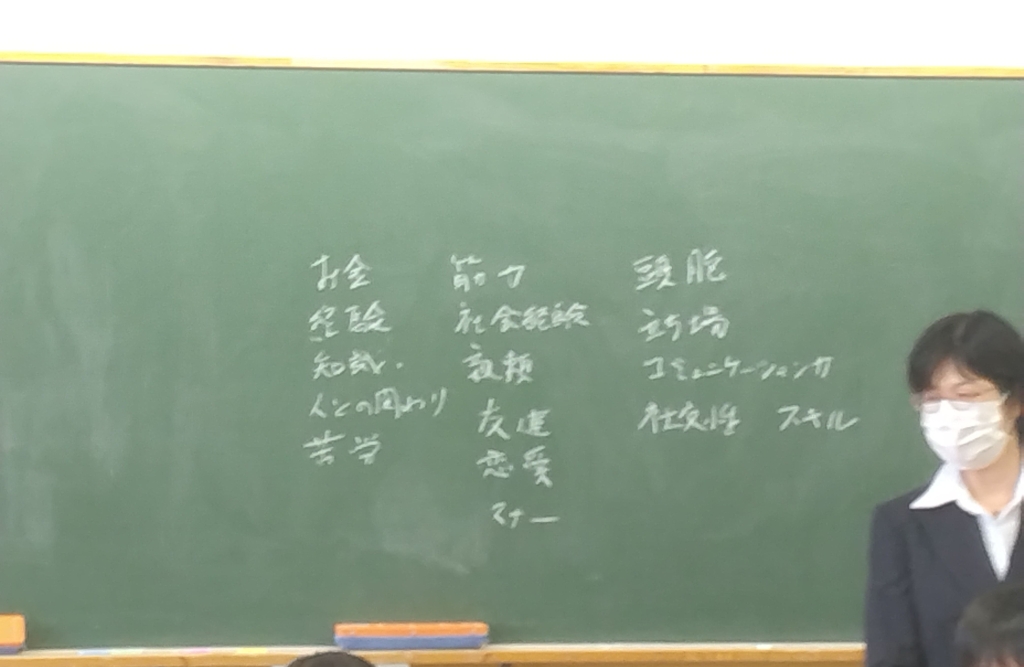 お金
経験
知識
人との関わり
苦労
筋力
社会経験
親頼
友達
恋愛
マナー
頭脳
立場
コミュニケーション力
社交性 スキル